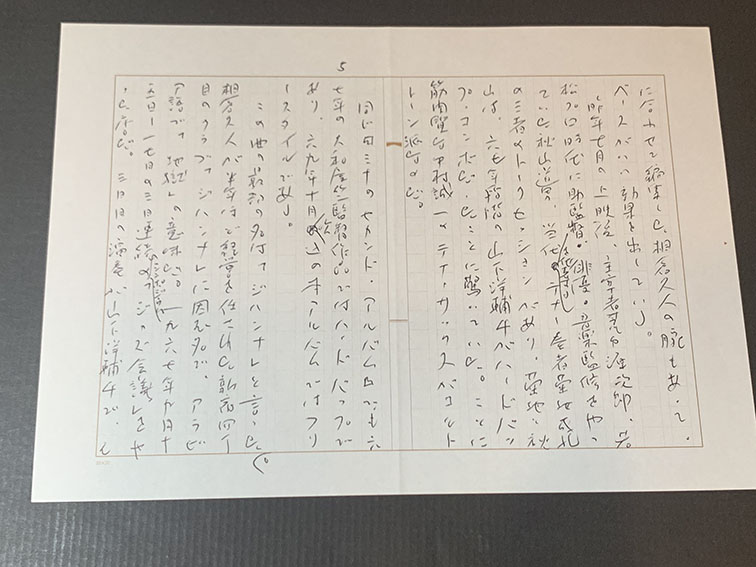 5
に合わせて編集した相倉久人の腕もあって、
ベースがいい効果を出している。
昨年七月の上映後、主宰者荒白准次郎、若
松プロ時代に助監督・俳優・音楽監修をやっ
ていた秋山道男、当代 テナー奏者菊地成孔
の三者のトークセッションがあり、菊地と秋
山は、六七年階階の山下洋輔4がハードバッ
プ・コンボだったことに驚いていた。ことに
筋肉質な中村誠一のテナー・サックスがコルト
レーン派なのだ。
同じ日ミナのセカンド・アルバム でも六
七年の大和屋竺監督作品ではハードバップで
あり、六九年十月 の本アルバムではフリ
ースタイルである。
この曲の最初の名は「ジハンナ」と言った。
相倉久人が半年ほど経営を任された新宿 丁
目のクラブ「ジハンナ」に因む名で、アラビ
ア語で「地獄」の意味だ。一九六七年九月十
五日〜十七日の三日連続の「ジャズ会議」をや
った店だ。三日目の演奏が山下洋輔4で、そ